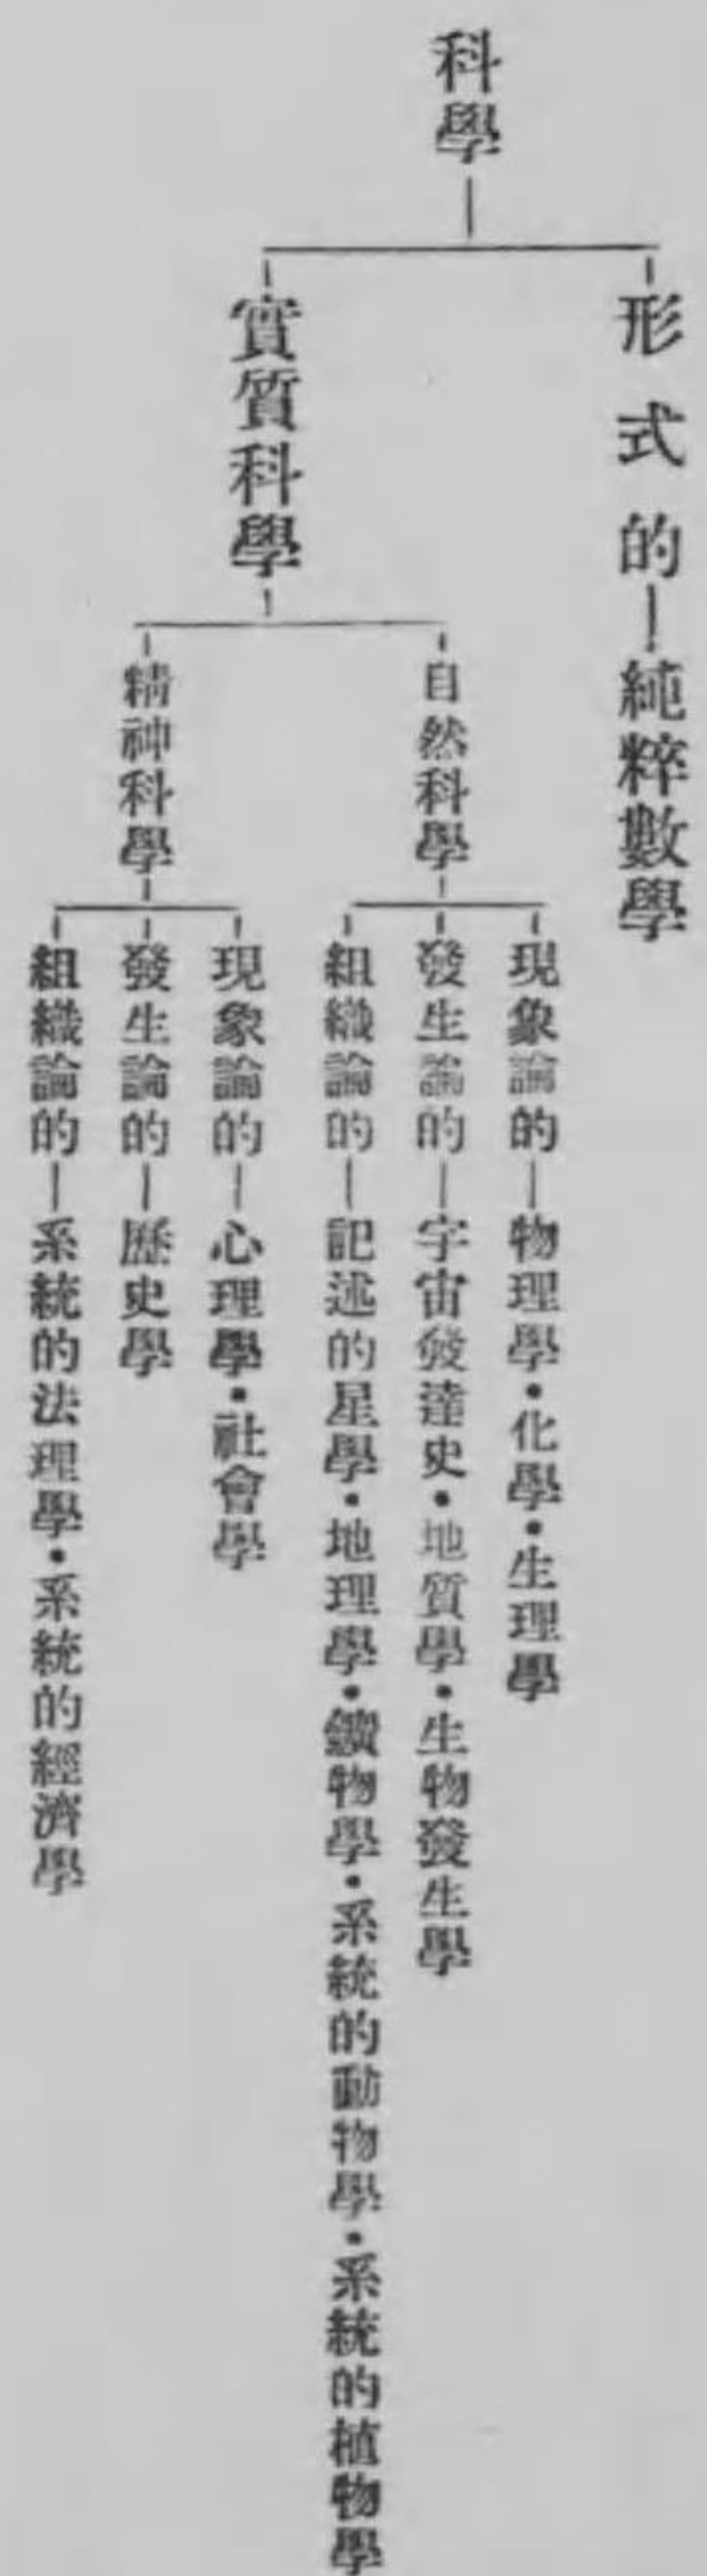 科學
形式的―純粹數學
實質科學
自然科學
現象論的―物理學・化學・生理學
發生論的―宇宙發達史・地質學・生物發生學
組織論的―記述的星學・地理學・鑛物學・系統的動物學・系統的植物學
精神科學
現象論的―心理學・社會學
發生論的―歷史學
組織論的―系統的法理學・系統的經濟學